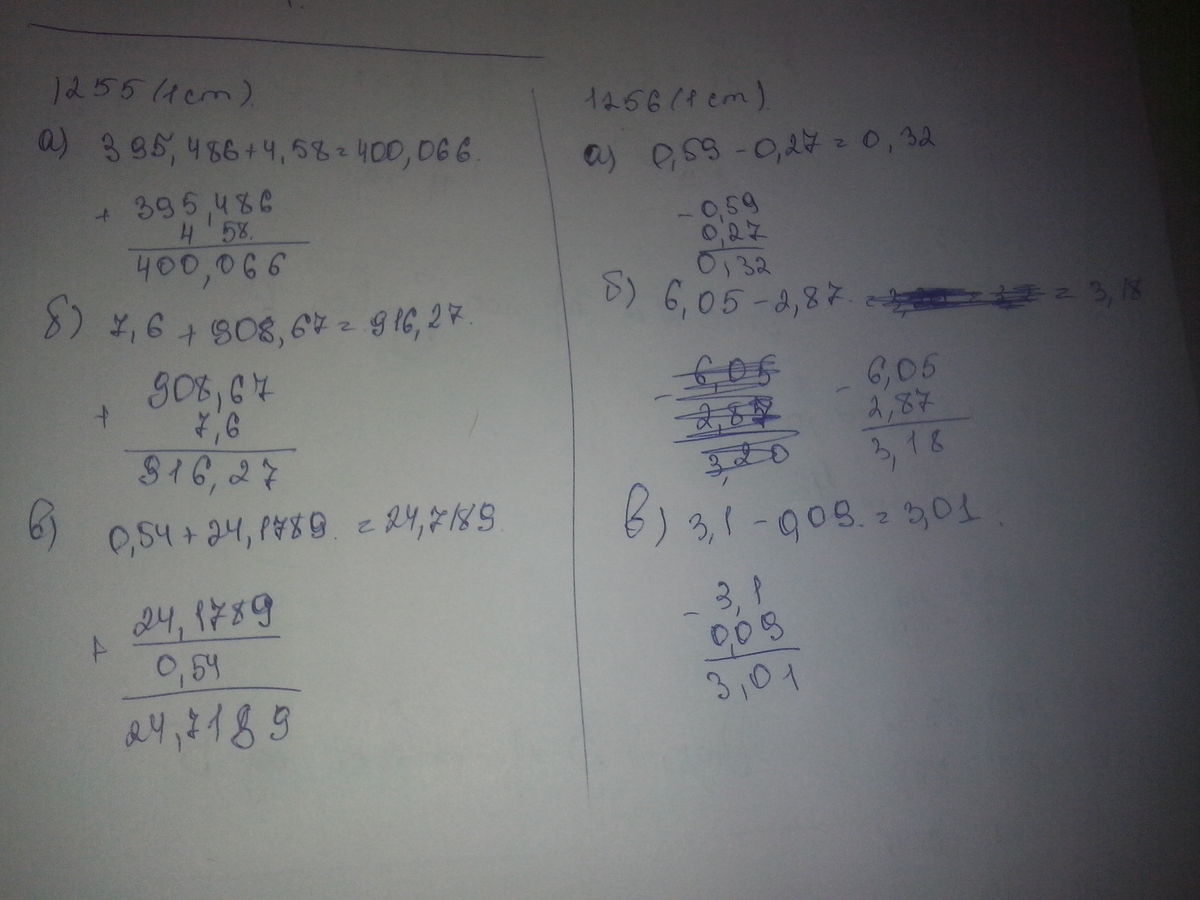 1255 (1 ст).
а) 395,486 + 4,58 = 400,066.
+ 395,486
4 58.
400,066
б) 7,6 + 908,67 = 916,27.
+ 908,67
7,6
916,27
в) 0,54 + 24,1789. = 24,7189.
+ 24,1789
0,54
24,7189
1256 (1 ст).
а) 0,59 - 0,27 = 0,32
- 0,59
0,27
0,32
б) 6,05 - 2,87. = = 3,18
- 6,05
2,87
3,20
- 6,05
2,87
3,18
в) 3,1 - 0,09. = 3,01.
- 3,1
0,09
3,01